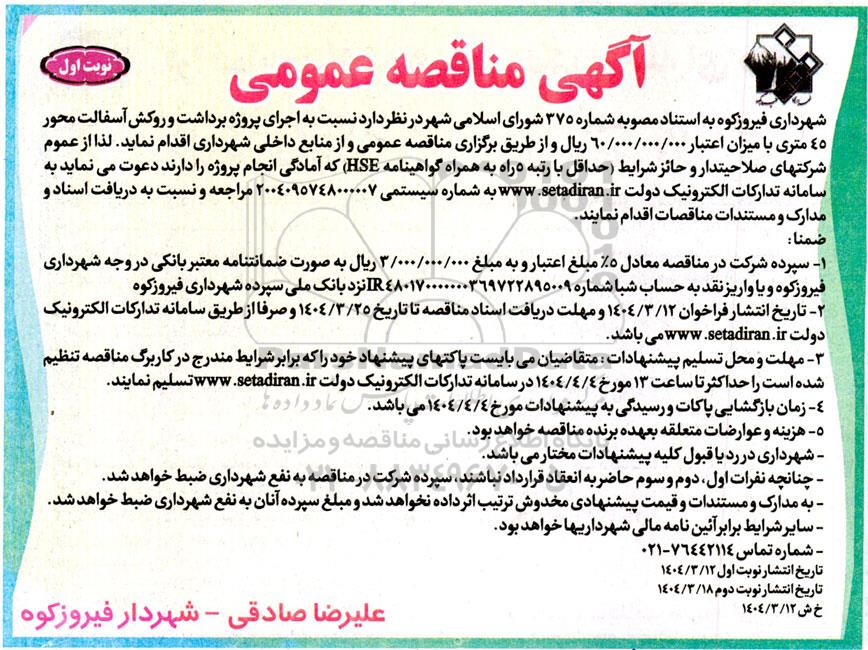 آگهی مناقصه عمومی
نوبت اول
شهرداری فیروزکوه به استناد مصوبه شماره ۳۷۵ شورای اسلامی شهر در نظر دارد نسبت به اجرای پروژه برداشت و روکش آسفالت محور
۴۵ متری با میزان اعتبار ۶۰/۰۰۰/۰۰۰/۰۰۰ ریال و از طریق برگزاری مناقصه عمومی و از منابع داخلی شهرداری اقدام نماید. لذا از عموم
شرکتهای صلاحیتدار و حائز شرایط (حداقل با رتبه ۵راه به همراه گواهینامه HSE) که آمادگی انجام پروژه را دارند دعوت می نماید به
سامانه تدارکات الکترونیک دولت www.setadiran.ir به شماره سیستمی ۲۰۰۴۰۹۵۷۴۸۰۰۰۰۰۷ مراجعه و نسبت به دریافت اسناد و
مدارک و مستندات مناقصات اقدام نمایند.
ضمنا:
۱- سپرده شرکت در مناقصه معادل ۵٪ مبلغ اعتبار و به مبلغ ۳/۰۰۰/۰۰۰/۰۰۰ ریال به صورت ضمانتنامه معتبر بانکی در وجه شهرداری
فیروزکوه و یا واریز نقد به حساب شبا شماره IR۴۸۰۱۷۰۰۰۰۰۰۰۳۶۹۷۲۲۸۹۵۰۰۹نزد بانک ملی سپرده شهرداری فیروزکوه
۲- تاریخ انتشار فراخوان ۱۴۰۴/۳/۱۲ و مهلت دریافت اسناد مناقصه تا تاریخ ۱۴۰۴/۳/۲۵ و صرفا از طریق سامانه تدارکات الکترونیک
دولت www.setadiran.ir می باشد.
۳- مهلت و محل تسلیم پیشنهادات : متقاضیان می بایست پاکتهای پیشنهاد خود را که برابر شرایط مندرج در کاربرگ مناقصه تنظیم
شده است را حداکثر تا ساعت ۱۳ مورخ ۱۴۰۴/۴/۴ در سامانه تدارکات الکترونیک دولت www.setadiran.ir تسلیم نمایند.
۴- زمان بازگشایی پاکات و رسیدگی به پیشنهادات مورخ ۱۴۰۴/۴/۴ می باشد.
۵- هزینه و عوارضات متعلقه بعهده برنده مناقصه خواهد بود.
- شهرداری در رد یا قبول کلیه پیشنهادات مختار می باشد.
- چنانچه نفرات اول، دوم و سوم حاضر به انعقاد قرارداد نباشند، سپرده شرکت در مناقصه به نفع شهرداری ضبط خواهد شد.
- به مدارک و مستندات و قیمت پیشنهادی مخدوش ترتیب اثر داده نخواهد شد و مبلغ سپرده آنان به نفع شهرداری ضبط خواهد شد.
- سایر شرایط برابر آئین نامه مالی شهرداریها خواهد بود.
- شماره تماس ۷۶۴۴۲۱۱۴-۰۲۱
تاریخ انتشار نوبت اول ۱۴۰۴/۳/۱۲
تاریخ انتشار نوبت دوم ۱۴۰۴/۳/۱۸
خ ش ۱۴۰۴/۳/۱۲
علیرضا صادقی - شهردار فیروزکوه
ParsNamadData
پایگاه اطلاع رسانی مناقصه و مزایده